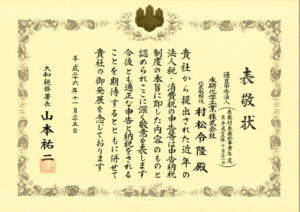 表敬状
優良申告法人
水研化学工業株式会社
代表取締役 村松令隆殿
貴社から提出された近年の
法人税・消費税の申告等は申告納税
制度の本旨に即した内容のものと
認められここに深く敬意を表します
今後とも適正な申告と納税をされる
ことを期待するとともに併せて
貴社の御発展を祈念しております
平成二十六年十一月二十五日
大和税務署長
山本祐二